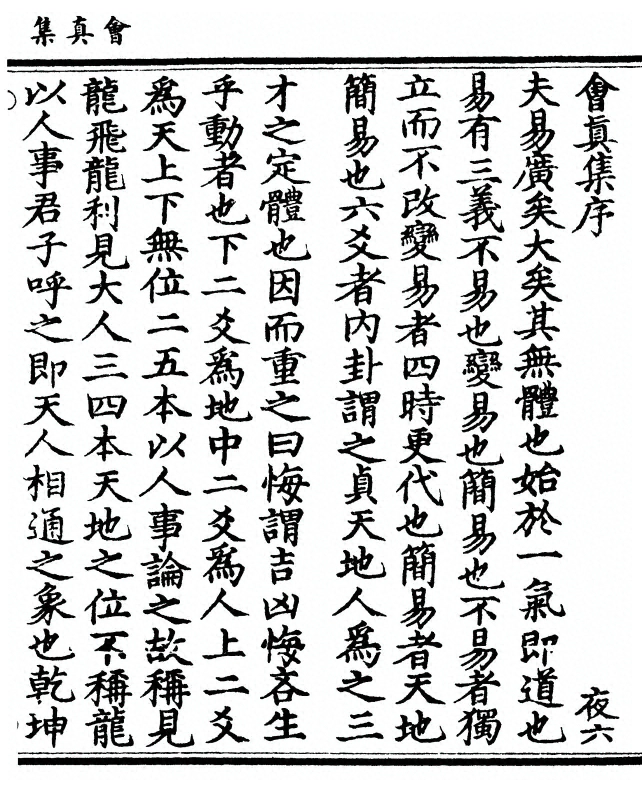 會真集
會眞集序
夜六
夫易廣矣大矣其無體也始於一氣即道也
易有三義不易也變易也簡易也不易者獨
立而不改變易者四時更代也簡易者天地
簡易也六爻者内卦謂之貞天地人爲之三
才之定體也因而重之曰悔謂吉凶悔吝生
乎動者也下二爻爲地中二爻爲人上二爻
爲天上下無位二五本以人事論之故稱見
龍飛龍利見大人三四本天地之位不稱龍
以人事君子呼之即天人相通之象也乾坤